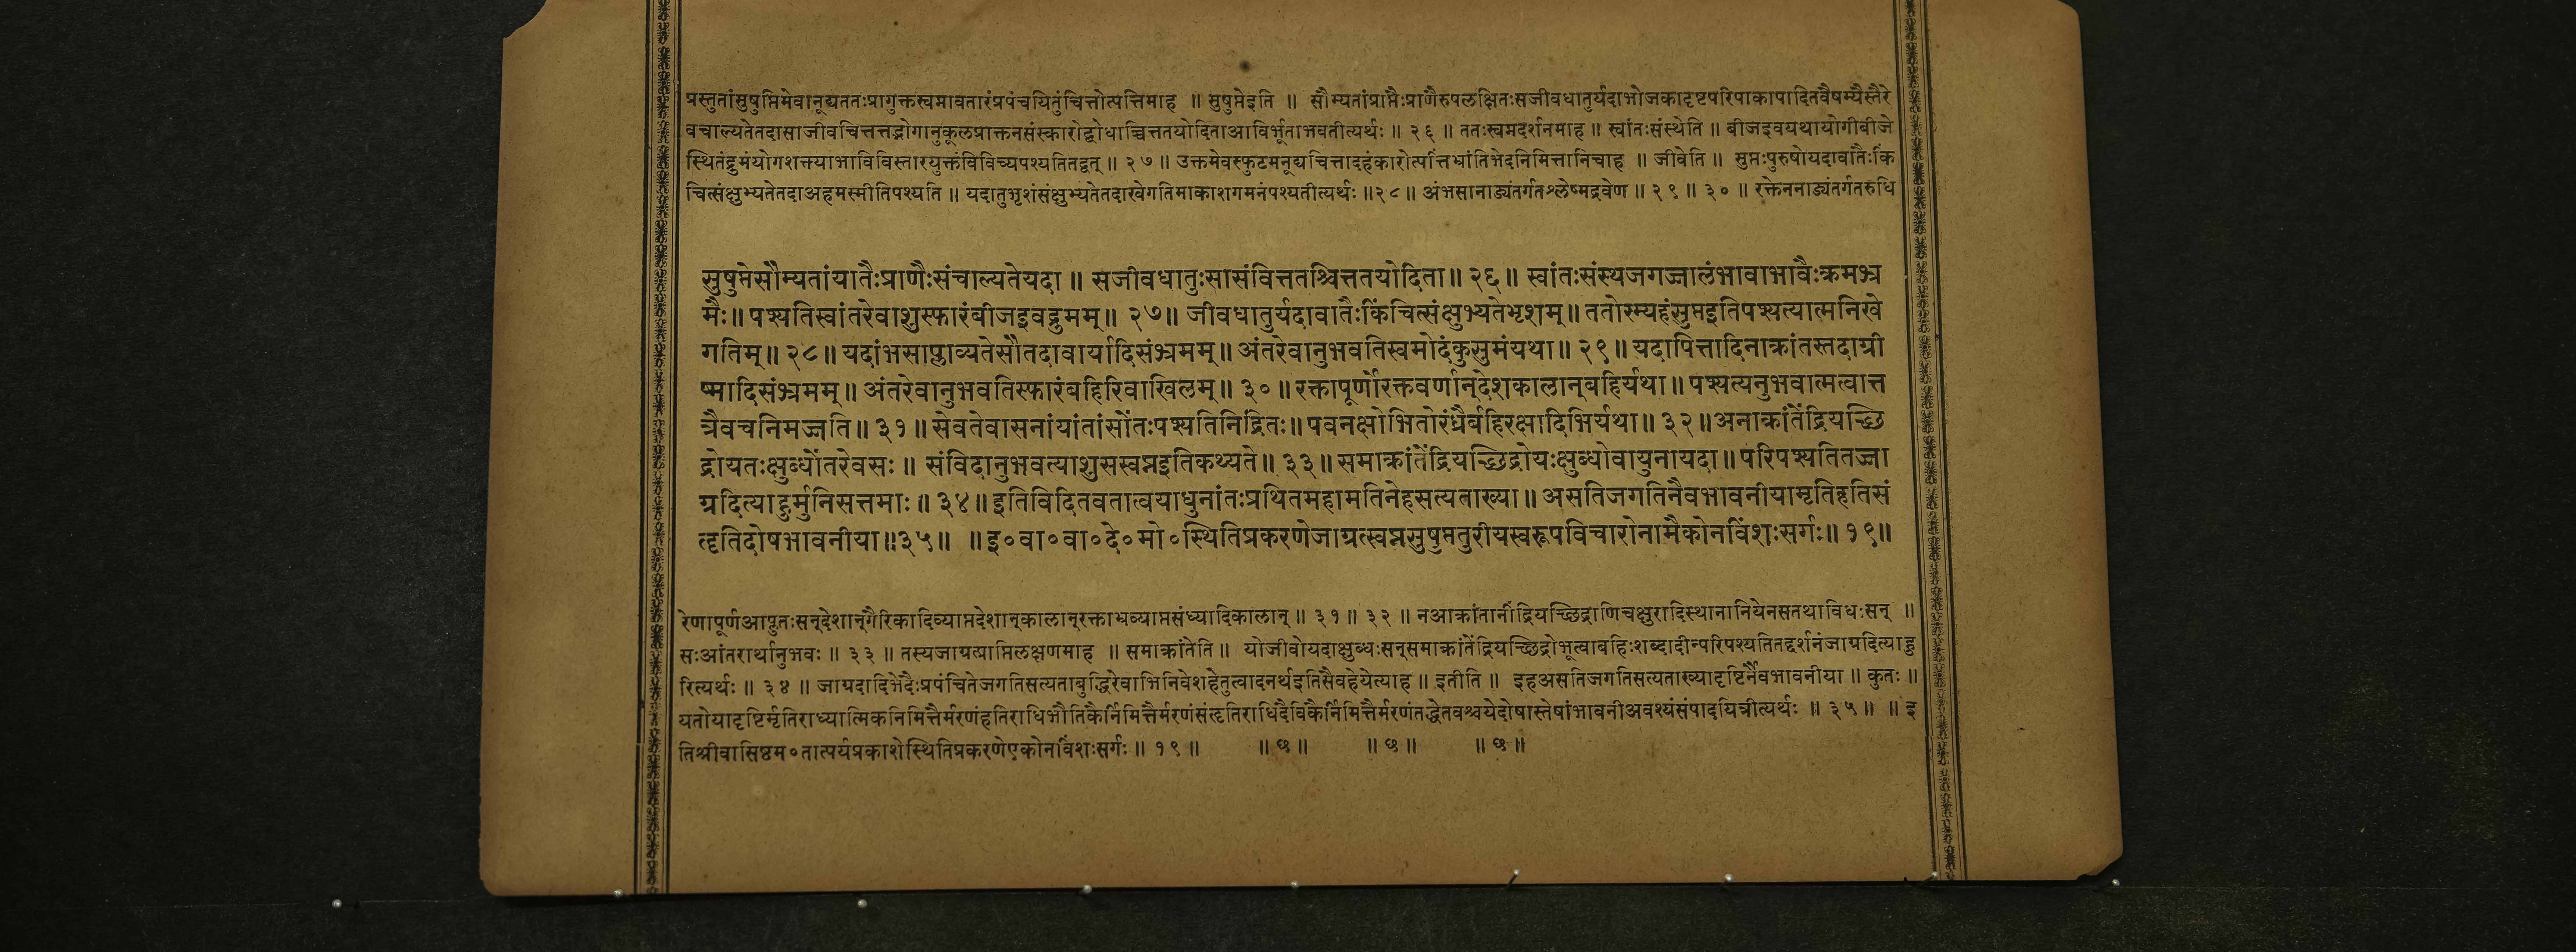 प्रस्तुतांसुषुप्तिमेवानूद्यततःप्रागुक्तस्वप्नावतारंप्रपंचयितुंचित्तोत्पत्तिमाह ॥ सुषुप्तेइति ॥ सौम्यतांप्राप्तैःप्राणैरुपलक्षितःसजीवधातुर्यदाभोजकादृष्टपरिपाकापादितवैषम्यैस्तैरे
वचाल्यतेतदासाजीवचित्तत्तद्भोगानुकूलप्राक्तनसंस्कारोद्बोधाच्चित्ततयोदिताआविर्भूताभवतीत्यर्थः ॥ २६ ॥ ततःस्वप्नदर्शनमाह ॥ स्वांतःसंस्थेति ॥ बीजइवयथायोगीबीजे
स्थितंद्रुमंयोगशक्त्याभाविविस्तारयुक्तंविविच्यपश्यतितद्वत् ॥ २७ ॥ उक्तमेवस्फुटमनूद्यचित्तादहंकारोत्पत्तिभ्रांतिभेदनिमित्तानिचाह ॥ जीवेति ॥ सुप्तःपुरुषोयदावातैःकिं
चित्संक्षुभ्यतेतदाअहमस्मीतिपश्यति ॥ यदातुभृशंसंक्षुभ्यंतेतदाखेगतिमाकाशगमनंपश्यतीत्यर्थः ॥२८॥ अंभसानाड्यंतर्गतश्लेष्मद्रवेण ॥ २९ ॥ ३० ॥ रक्तेननाड्यंतर्गतरुधि
सुषुप्तेसौम्यतांयातैःप्राणैःसंचाल्यतेयदा ॥ सजीवधातुःसासंवित्ततश्चित्ततयोदिता॥ २६॥ स्वांतःसंस्थजगज्जालंभावाभावैःक्रमभ्र
मैः॥ पश्यतिस्वांतरेवाशुस्फारंबीजइवद्रुमम्॥ २७॥ जीवधातुर्यदावातैःकिंचित्संक्षुभ्यतेभृशम्॥ ततोस्म्यहंसुप्तइतिपश्यत्यात्मनिखे
गतिम्॥ २८॥ यदांभसाप्लाव्यतेसौतदावार्यादिसंभ्रमम्॥ अंतरेवानुभवतिस्वमोदंकुसुमंयथा॥ २९॥ यदापित्तादिनाक्रांतस्तदाग्री
ष्मादिसंभ्रमम्॥ अंतरेवानुभवतिस्फारंबहिरिवाखिलम्॥ ३०॥ रक्तापूर्णोरक्तवर्णान्देशकालान्बहिर्यथा॥ पश्यत्यनुभवात्मत्वात्त
त्रैवचनिमज्जति॥ ३१॥ सेवतेवासनांयांतांसोंतःपश्यतिनिद्रितः॥ पवनक्षोभितोरंध्रैर्बहिरक्षादिभिर्यथा॥ ३२॥ अनाक्रांतेंद्रियच्छि
द्रोयतःक्षुब्धोंतरेवसः ॥ संविदानुभवत्याशुसस्वप्नइतिकथ्यते॥ ३३॥ समाक्रांतेंद्रियच्छिद्रोयःक्षुब्धोवायुनायदा॥ परिपश्यतितज्जा
ग्रदित्याहुर्मुनिसत्तमाः॥ ३४॥ इतिविदितवतात्वयाधुनांतःप्रथितमहामतिनेहसत्यताख्या॥ असतिजगतिनैवभावनीयामृतिहृतिसं
त्दृतिदोषभावनीया॥३५॥ ॥इ०वा०वा०दे०मो०स्थितिप्रकरणेजाग्रत्स्वप्नसुषुप्ततुरीयस्वरूपविचारोनामैकोनविंशःसर्गः॥ १९॥
रेणापूर्णआप्लुतःसन्देशान्गैरिकादिव्याप्तदेशान्कालान्रक्ताभ्रव्याप्तसंध्यादिकालान् ॥ ३१॥ ३२ ॥ नआक्रांतानींद्रियच्छिद्राणिचक्षुरादिस्थानानियेनसतथाविधःसन् ॥
सःआंतरार्थानुभवः ॥ ३३ ॥ तस्यजाग्रत्प्राप्तिलक्षणमाह ॥ समाक्रांतेति ॥ योजीवोयदाक्षुब्धःसन्समाक्रांतेंद्रियच्छिद्रोभूत्वाबहिःशब्दादीन्परिपश्यतितद्दर्शनंजाग्रदित्याहु
रित्यर्थः ॥ ३४ ॥ जाग्रदादिभेदैःप्रपंचितेजगतिसत्यताबुद्धिरेवाभिनिवेशहेतुत्वादनर्थइतिसैवहेयेत्याह ॥ इतीति ॥ इहअसतिजगतिसत्यताख्यादृष्टिर्नैवभावनीया ॥ कुतः ॥
यतोयादृष्टिर्मृतिराध्यात्मिकनिमित्तैर्मरणंहतिराधिभौतिकैर्निमित्तैर्मरणंसंत्दृतिराधिदैविकैर्निमित्तैर्मरणंतद्धेतवश्चयेदोषास्तेषांभावनीअवश्यंसंपादयित्रीत्यर्थः ॥ ३५ ॥ ॥ इ
तिश्रीवासिष्ठम०तात्पर्यप्रकाशेस्थितिप्रकरणेएकोनविंशःसर्गः ॥ १९ ॥ ॥ छ ॥ ॥ छ ॥ ॥ छ ॥